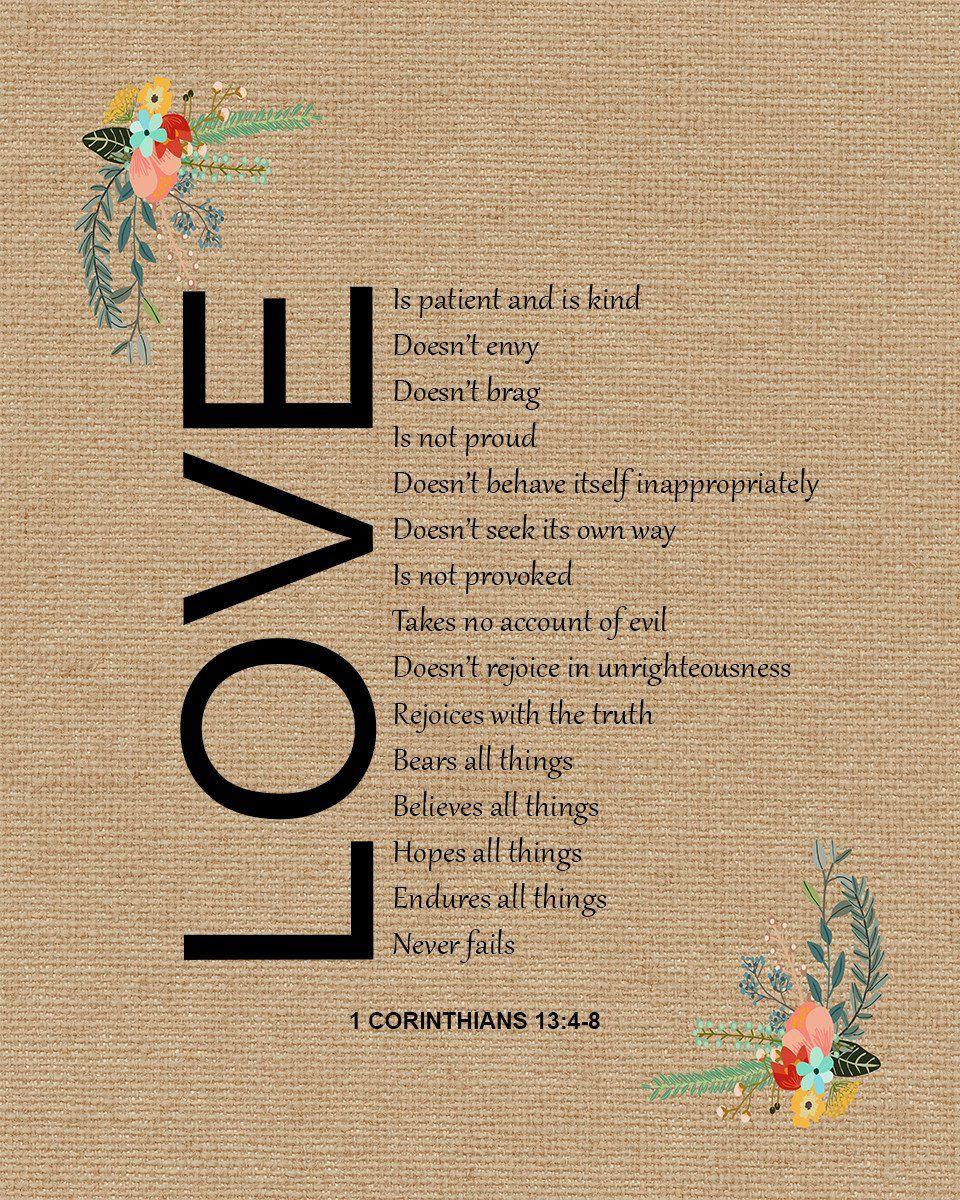 LOVE
Is patient and is kind
Doesn't envy
Doesn't brag
Is not proud
Doesn't behave itself inappropriately
Doesn't seek its own way
Is not provoked
Takes no account of evil
Doesn't rejoice in unrighteousness
Rejoices with the truth
Bears all things
Believes all things
Hopes all things
Endures all things
Never fails
1 CORINTHIANS 13:4-8